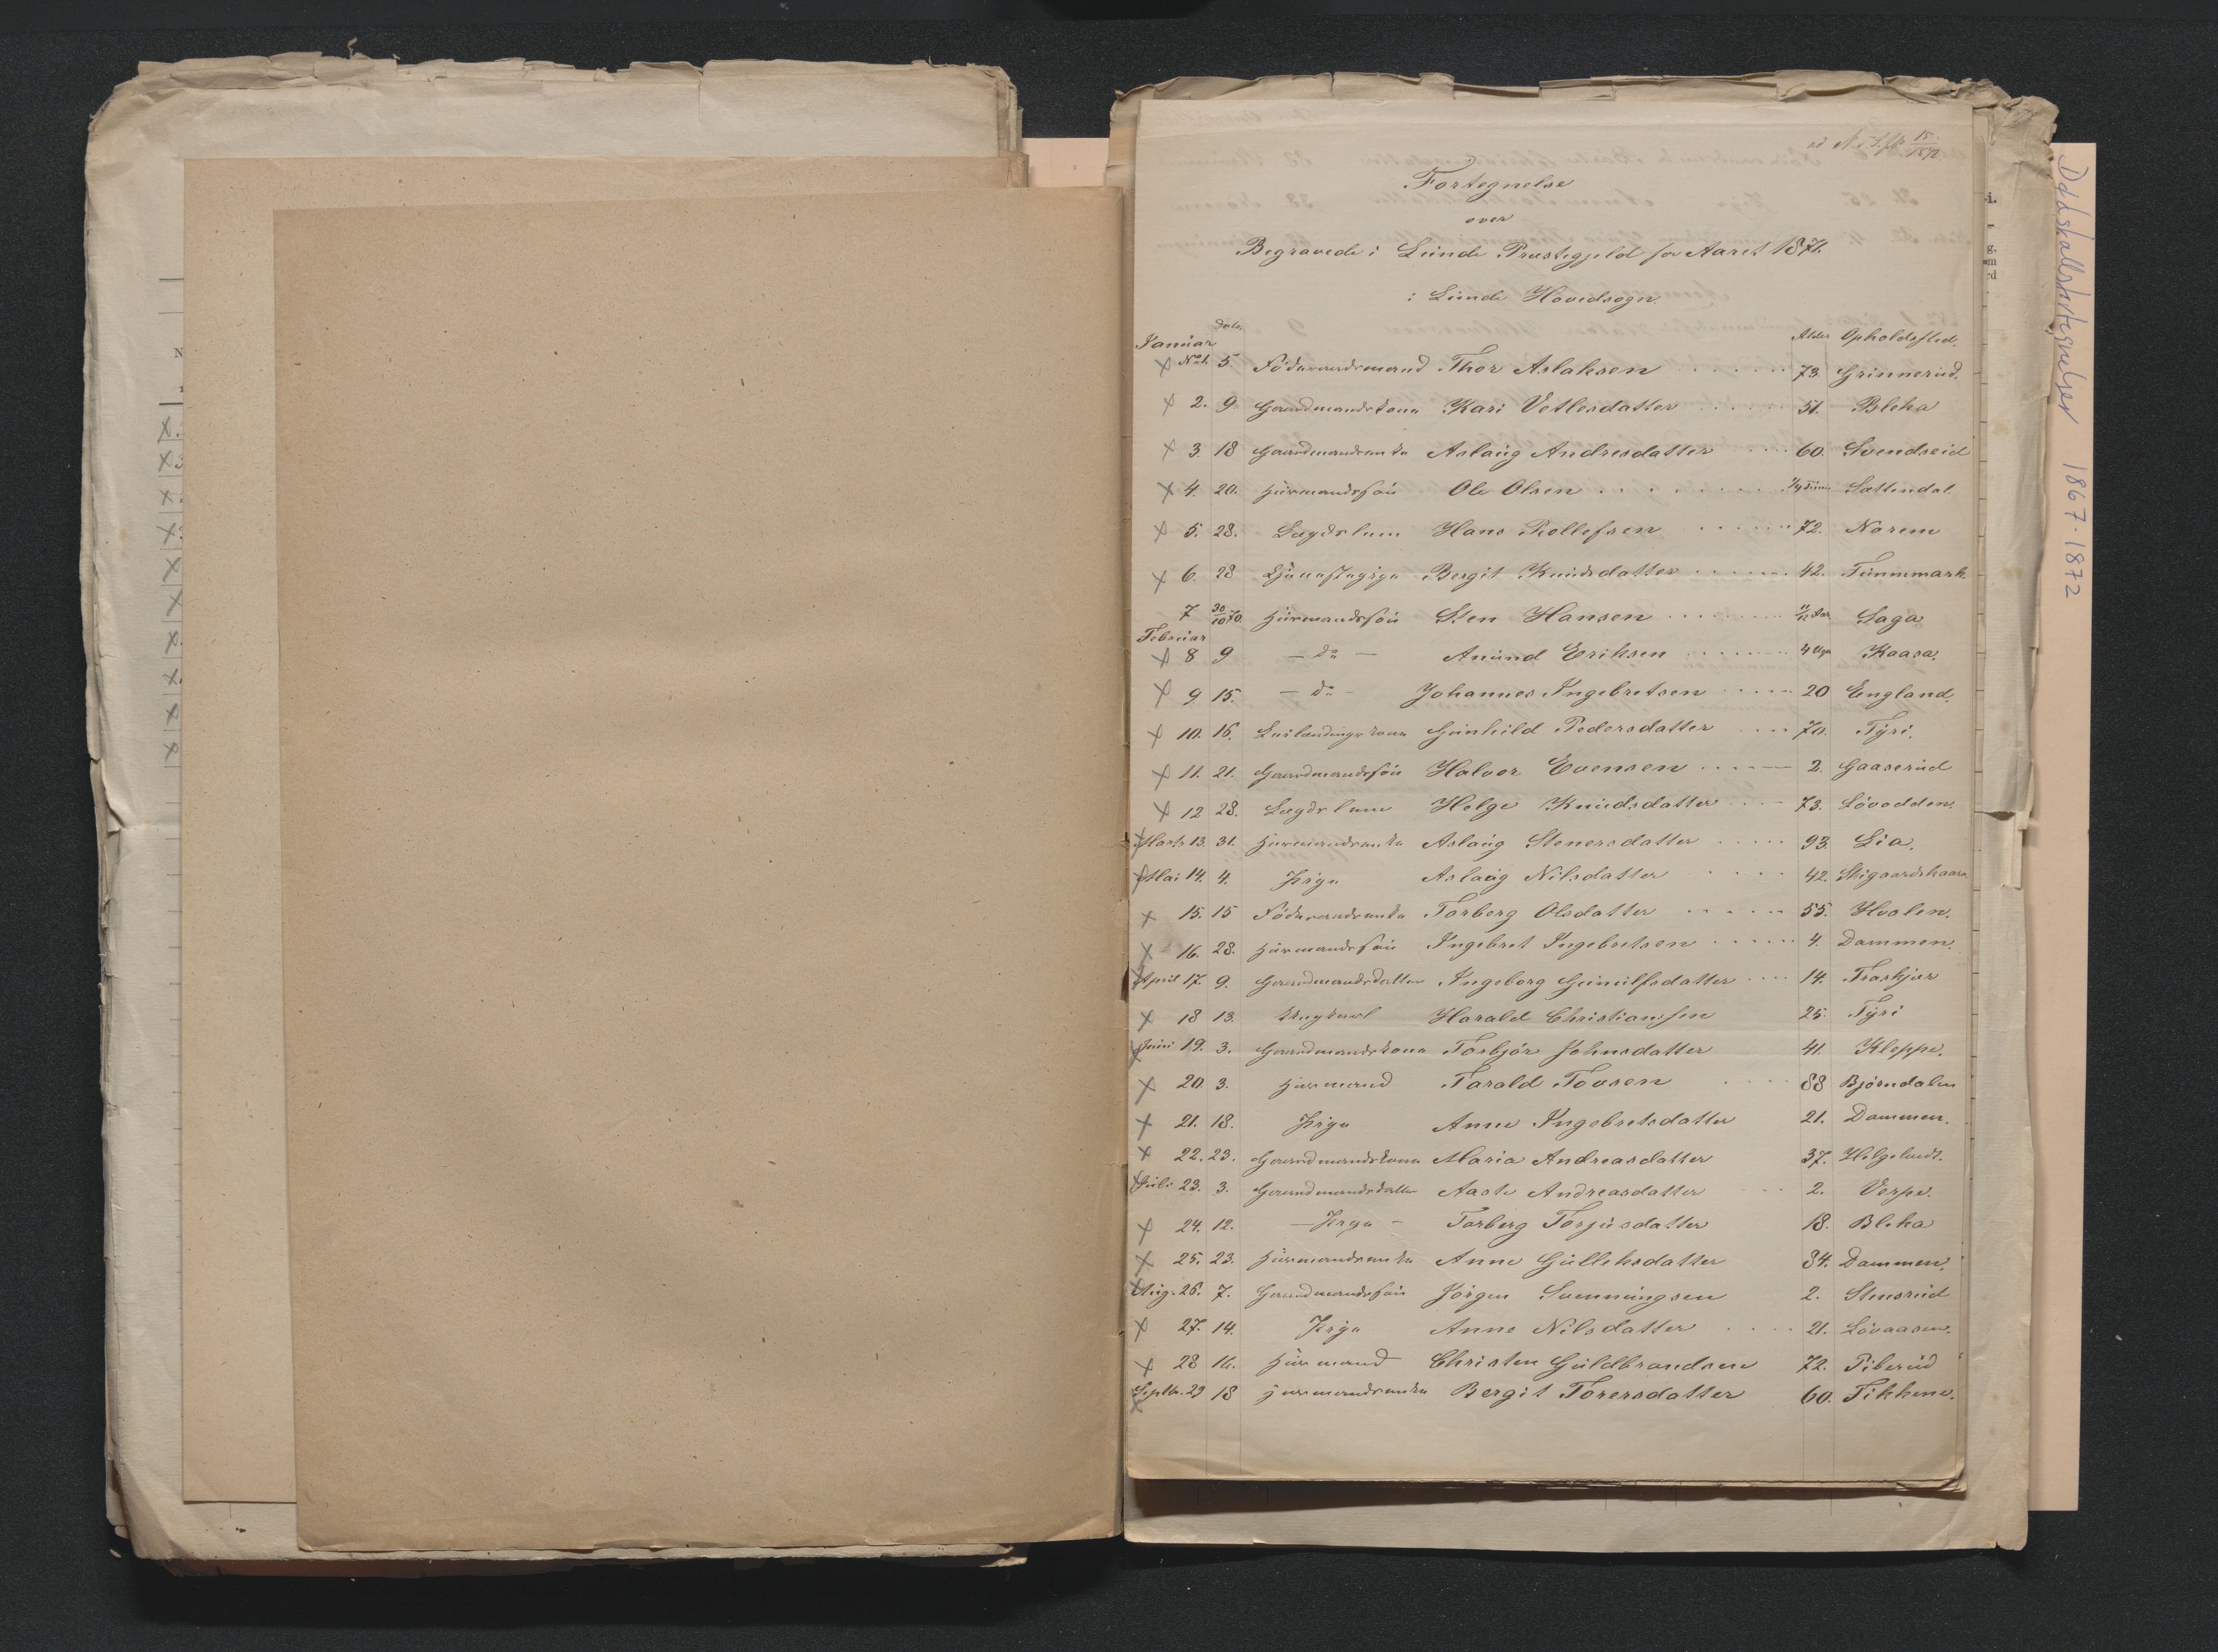 15/1872
Fortegnelse
over
Begravede i Lunde Præstegjeld for Aaret 1871.
i Lunde Hovedsogn.
Januar dato. Alder Opholdssted.
× No 1. 5. Föderaadsmand Thor Aslaksen 73 Grinnerud.
× 2. 9 Gaardmandskone Kari Vetlesdatter 51. Bleka
× 3. 18 Gaardmandsenke Aslaug Andresdatter 60. Svendseid
× 4. 20. Huusmandssön Ole Olsen Sattendal
× 5. 28. Lægdslem Hans Rollefsen 72. Norem
× 6. 28 Tjenestepige Bergit Knudsdatter 42. Tunnmark.
7 30/10 70. Huusmandssön Sten Hansen 11/12 Aar Saga
Februar
× 8 9 — do — Anund Eriksen 4 Uger Kaasa.
× 9. 15. — do — Johannes Ingebretsen 20 England.
× 10. 16. Gunhild Pedersdatter 70. Tyri.
× 11. 21. Gaardmandssön Halvor Evensen 2. Gaaserud
× 12 28. Lægdslem Helge Knudsdatter 73. Lövodden.
× Marts 13. 31. Huusmandsenke Aslaug Stenersdatter 93. Lia.
× Mai 14. 4. Pige Aslaug Nilsdatter 42. Skigaardskaasa
× 15. 15 Föderaadsenke Torberg Olsdatter 55. Hvolen.
× 16. 28. Huusmandssön Ingebret Ingebretsen 4. Dammen.
× April 17. 9. Gaardmandsdatter Ingeborg Gunulfsdatter 14. Traskjær
× 18 13. Ungkarl Harald Christiansen 25. Tyri
× Juni 19. 3. Gaardmandskone Torbjör Johnsdatter 41. Kleppe.
× 20. 3. Huusmand Tarald Tovsen 88 Björndalen
× 21. 18. Pige Anne Ingebretsdatter 21. Dammen.
× 22. 23. Gaardmandskone Maria Andreasdatter 37. Helgelandt.
× Juli 23. 3. Gaardmandsdatter Aaste Andreasdatter 2. Verpe.
× 24. 12. — Pige — Torberg Torjusdatter 18. Bleka
× 25. 23. Huusmandsenke Anne Gulleksdatter 84. Dammen.
× Aug. 26. 7. Gaardmandssön Jörgen Svenningsen 2. Stensrud
× 27. 14. Pige Anne Nilsdatter 21. Lövaasen.
× 28 16. Huusmand Christen Guldbrandsen 72. Piberud
× Septb. 29 18 Huusmandsenke Bergit Torersdatter 60. Tikkene.
Dødsfallsfortegnelser 1867-1872